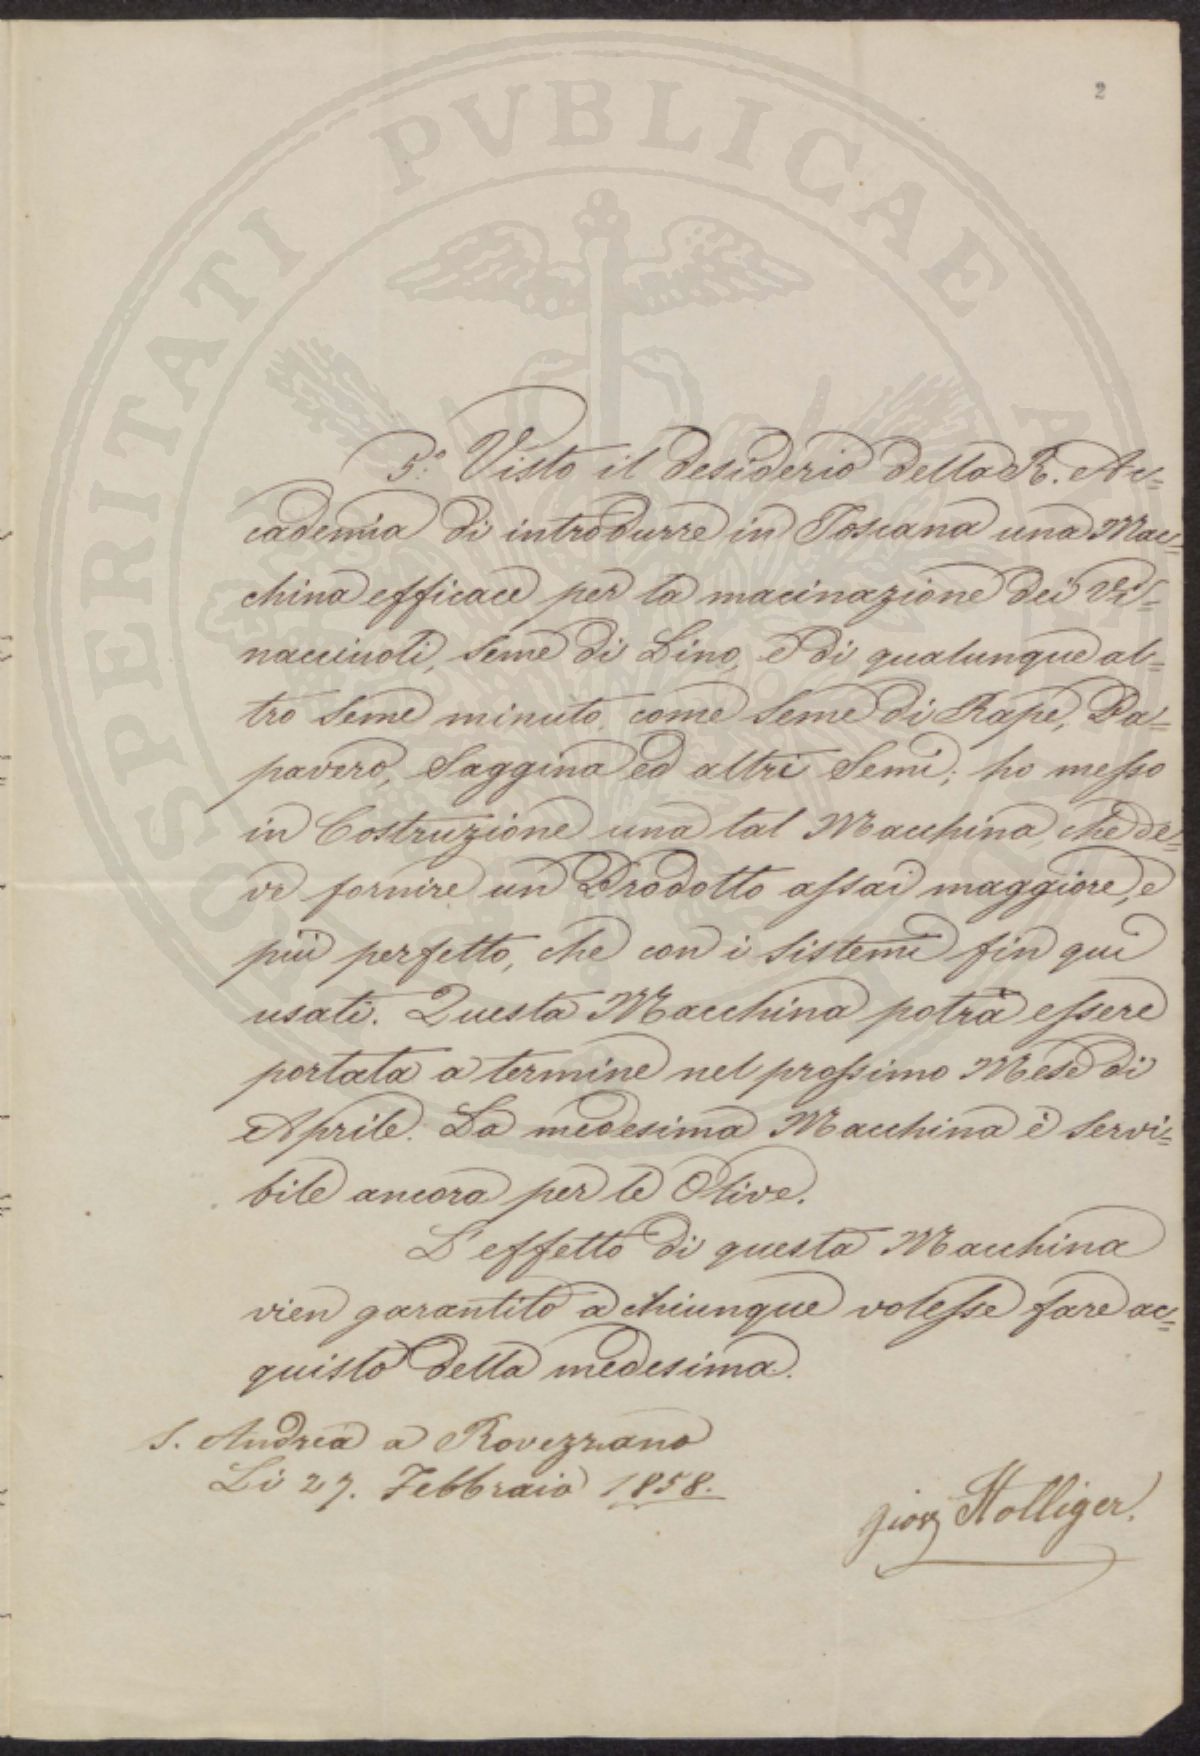 2
5.° Visto il desiderio della R. Ac=
cademia di introdurre in Toscana una Mac=
china efficace per la macinazione dei Vi=
nacciuoli, seme di Lino, e di qualunque al=
tro seme minuto, come seme di Rape, Pa=
pavero, Saggina ed altri Semi; ho messo
in Costruzione una tal Macchina, che de=
ve fornire un Prodotto assai maggiore, e
più perfetto, che con i sistemi fin qui
usati. Questa Macchina potrà essere
portata a termine nel prossimo Mese di
Aprile. La medesima Macchina è servi=
bile ancora per le Olive.
L'effetto di questa Macchina
vien garantito a chiunque volesse fare ac=
quisto della medesima.
S. Andrea a Rovezzano
Li 27. Febbraio 1858.
Holliger.
PROSPERITATI PVBLICAE AVGENDAE